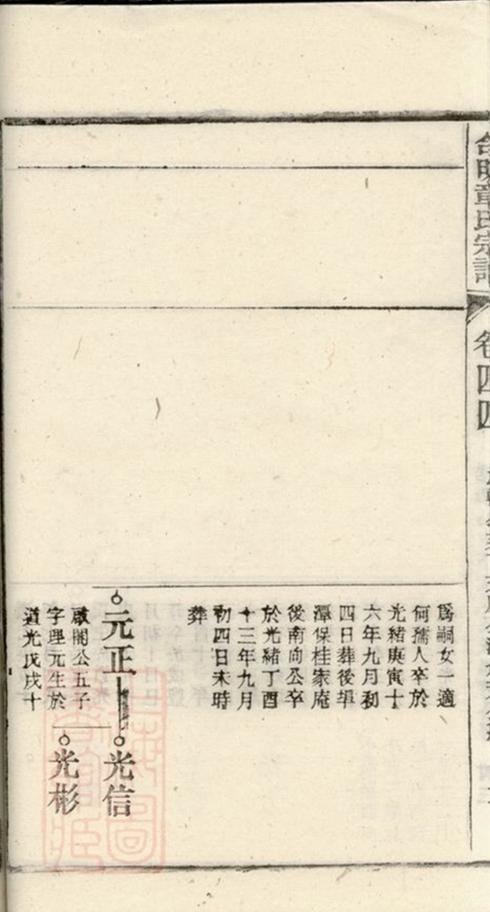 章氏宗譜
卷四四
爲嗣女一適
何孺人卒於
光緒庚寅十
六年九月初
四日葬後埠
潭保桂家庵
後南向公卒
於光緒丁酉
十三年九月
初四日未時
葬
元正
光信
啟閣公五子
字理元生於
道光戊戌十
光彬